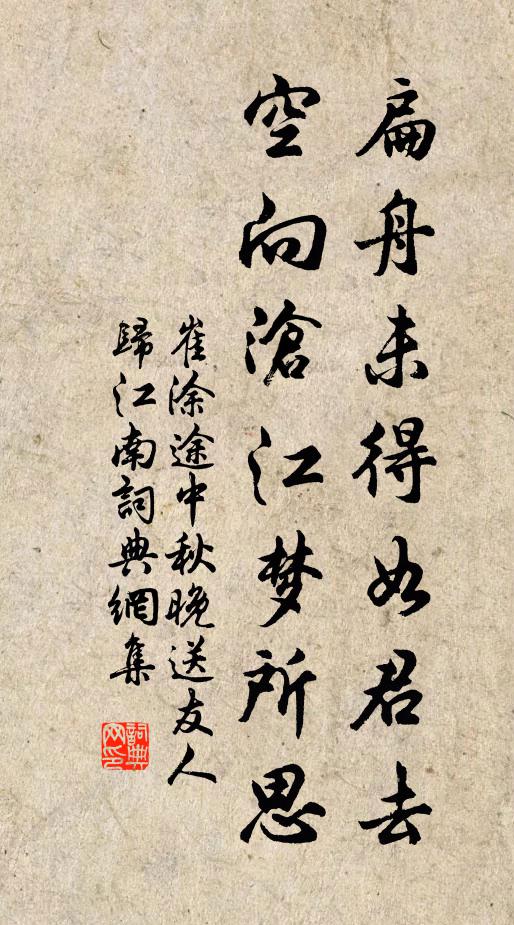 扁舟未得如君去
空向滄江梦所思
崔涂途中秋晚送友人
歸江南詞典網集
詞典
网印